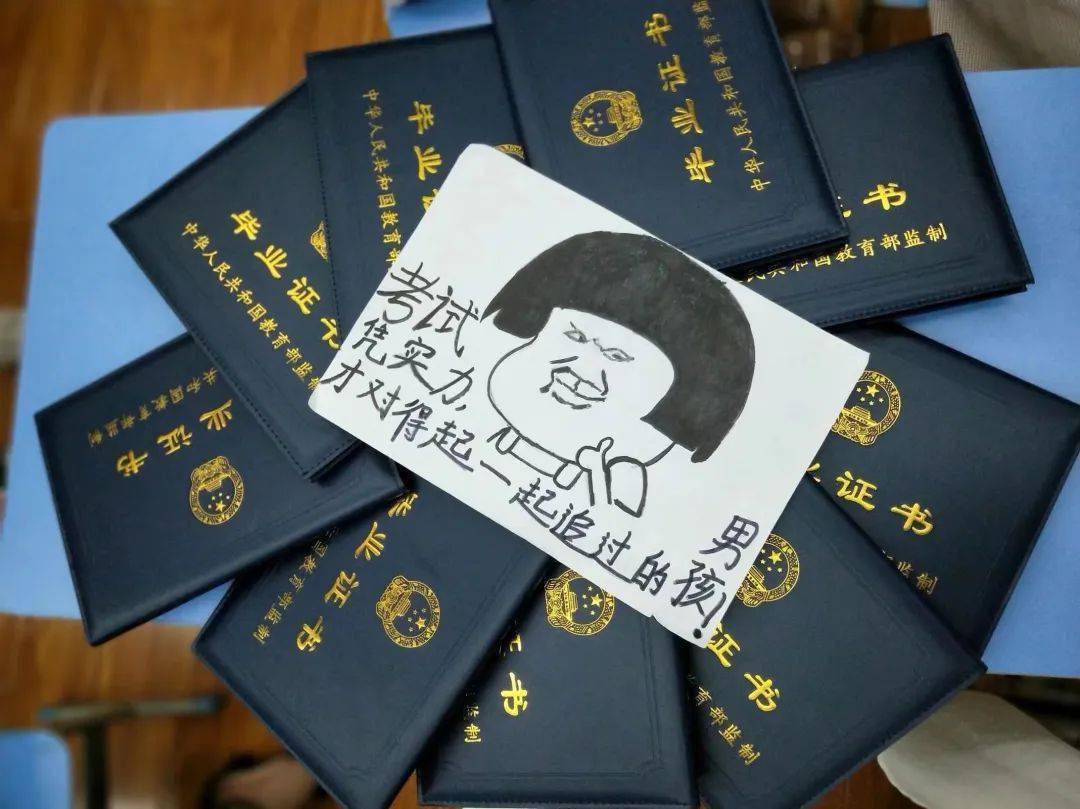 毕业证书
中华人民共和国教育部监
毕业
中华人民共和国教育部
毕业证书
中华人民共和国教育部监制
证书
共和国教育部监制
考试
凭实力,
才对得起一起追过的男孩!
业证书
共和国教育部监制
业证书
国教育部监制
书
监制
证书
教育部监制
证书
监制